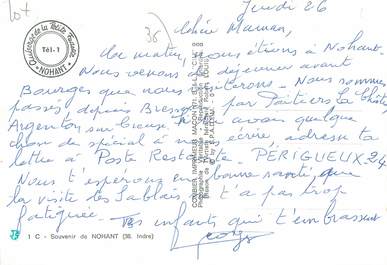 Jeudi 26
10+
38
Chère Maman,
Ce matin, nous étions à Nohant.
Nous venons de déjeuner avant
Bourges que nous visiterons. Nous sommes
passés depuis Bressuire par Poitiers La Châtre
Argenton sur Creuse. Si tu avais quelque
chose de spécial à nous écrire, adresse ta
lettre à Poste Restante PÉRIGUEUX 24
Nous t'espérons en bonne santé, que
la visite des Sables t'a pas trop
fatiguée. Tes enfants qui t'embrassent
Auberge de la Petite Fadette
Tél. 1
NOHANT
COMBIER IMPRIMEUR MACON
1 C - Souvenir de NOHANT (36. Indre)